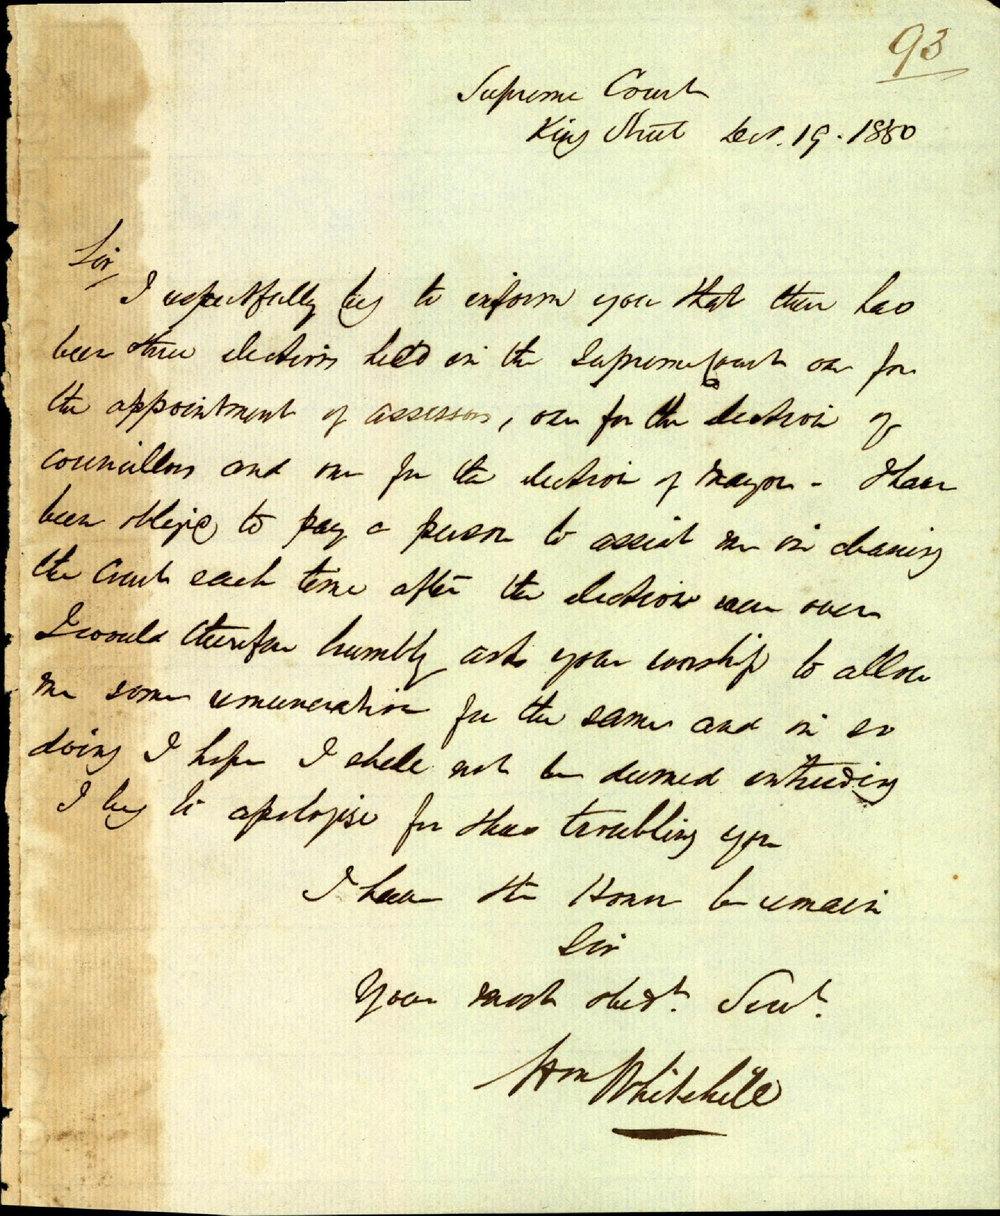 93
Supreme Court
King Street Decr. 19. 1850
Sir,
I respectfully beg to inform you that there has
been three elections held in the Supreme Court one for
the appointment of assessors, one for the election of
councillors and one for the election of Mayor - I have
been oblige to pay a person to assist me in cleaning
the Court each time after the election were over
I would therefore humbly ask your worship to allow
me some remuneration for the same and in so
doing I hope I shall not be deemed intruding
I beg to apologise for thus troubling you
I have the Honor be remain
Sir
Your most obedt. Servt.
Wm Whitehill